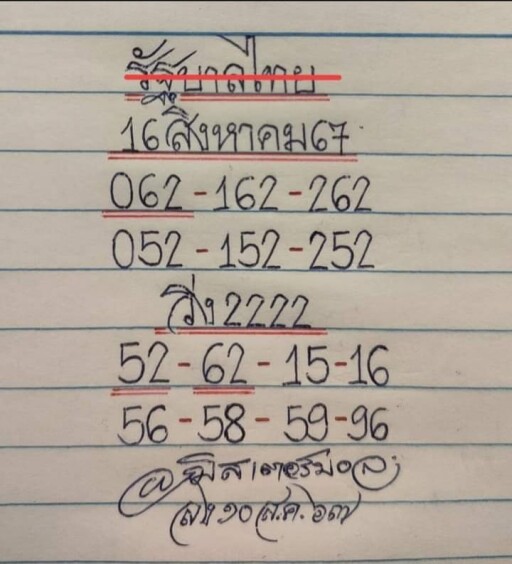 รัฐบาลไทย
16สิงหาคม67
062-162-262
052-152-252
วิ่ง2222
52-62-15-16
56-58-59-96
๑๐ ส.ค. ๖๗